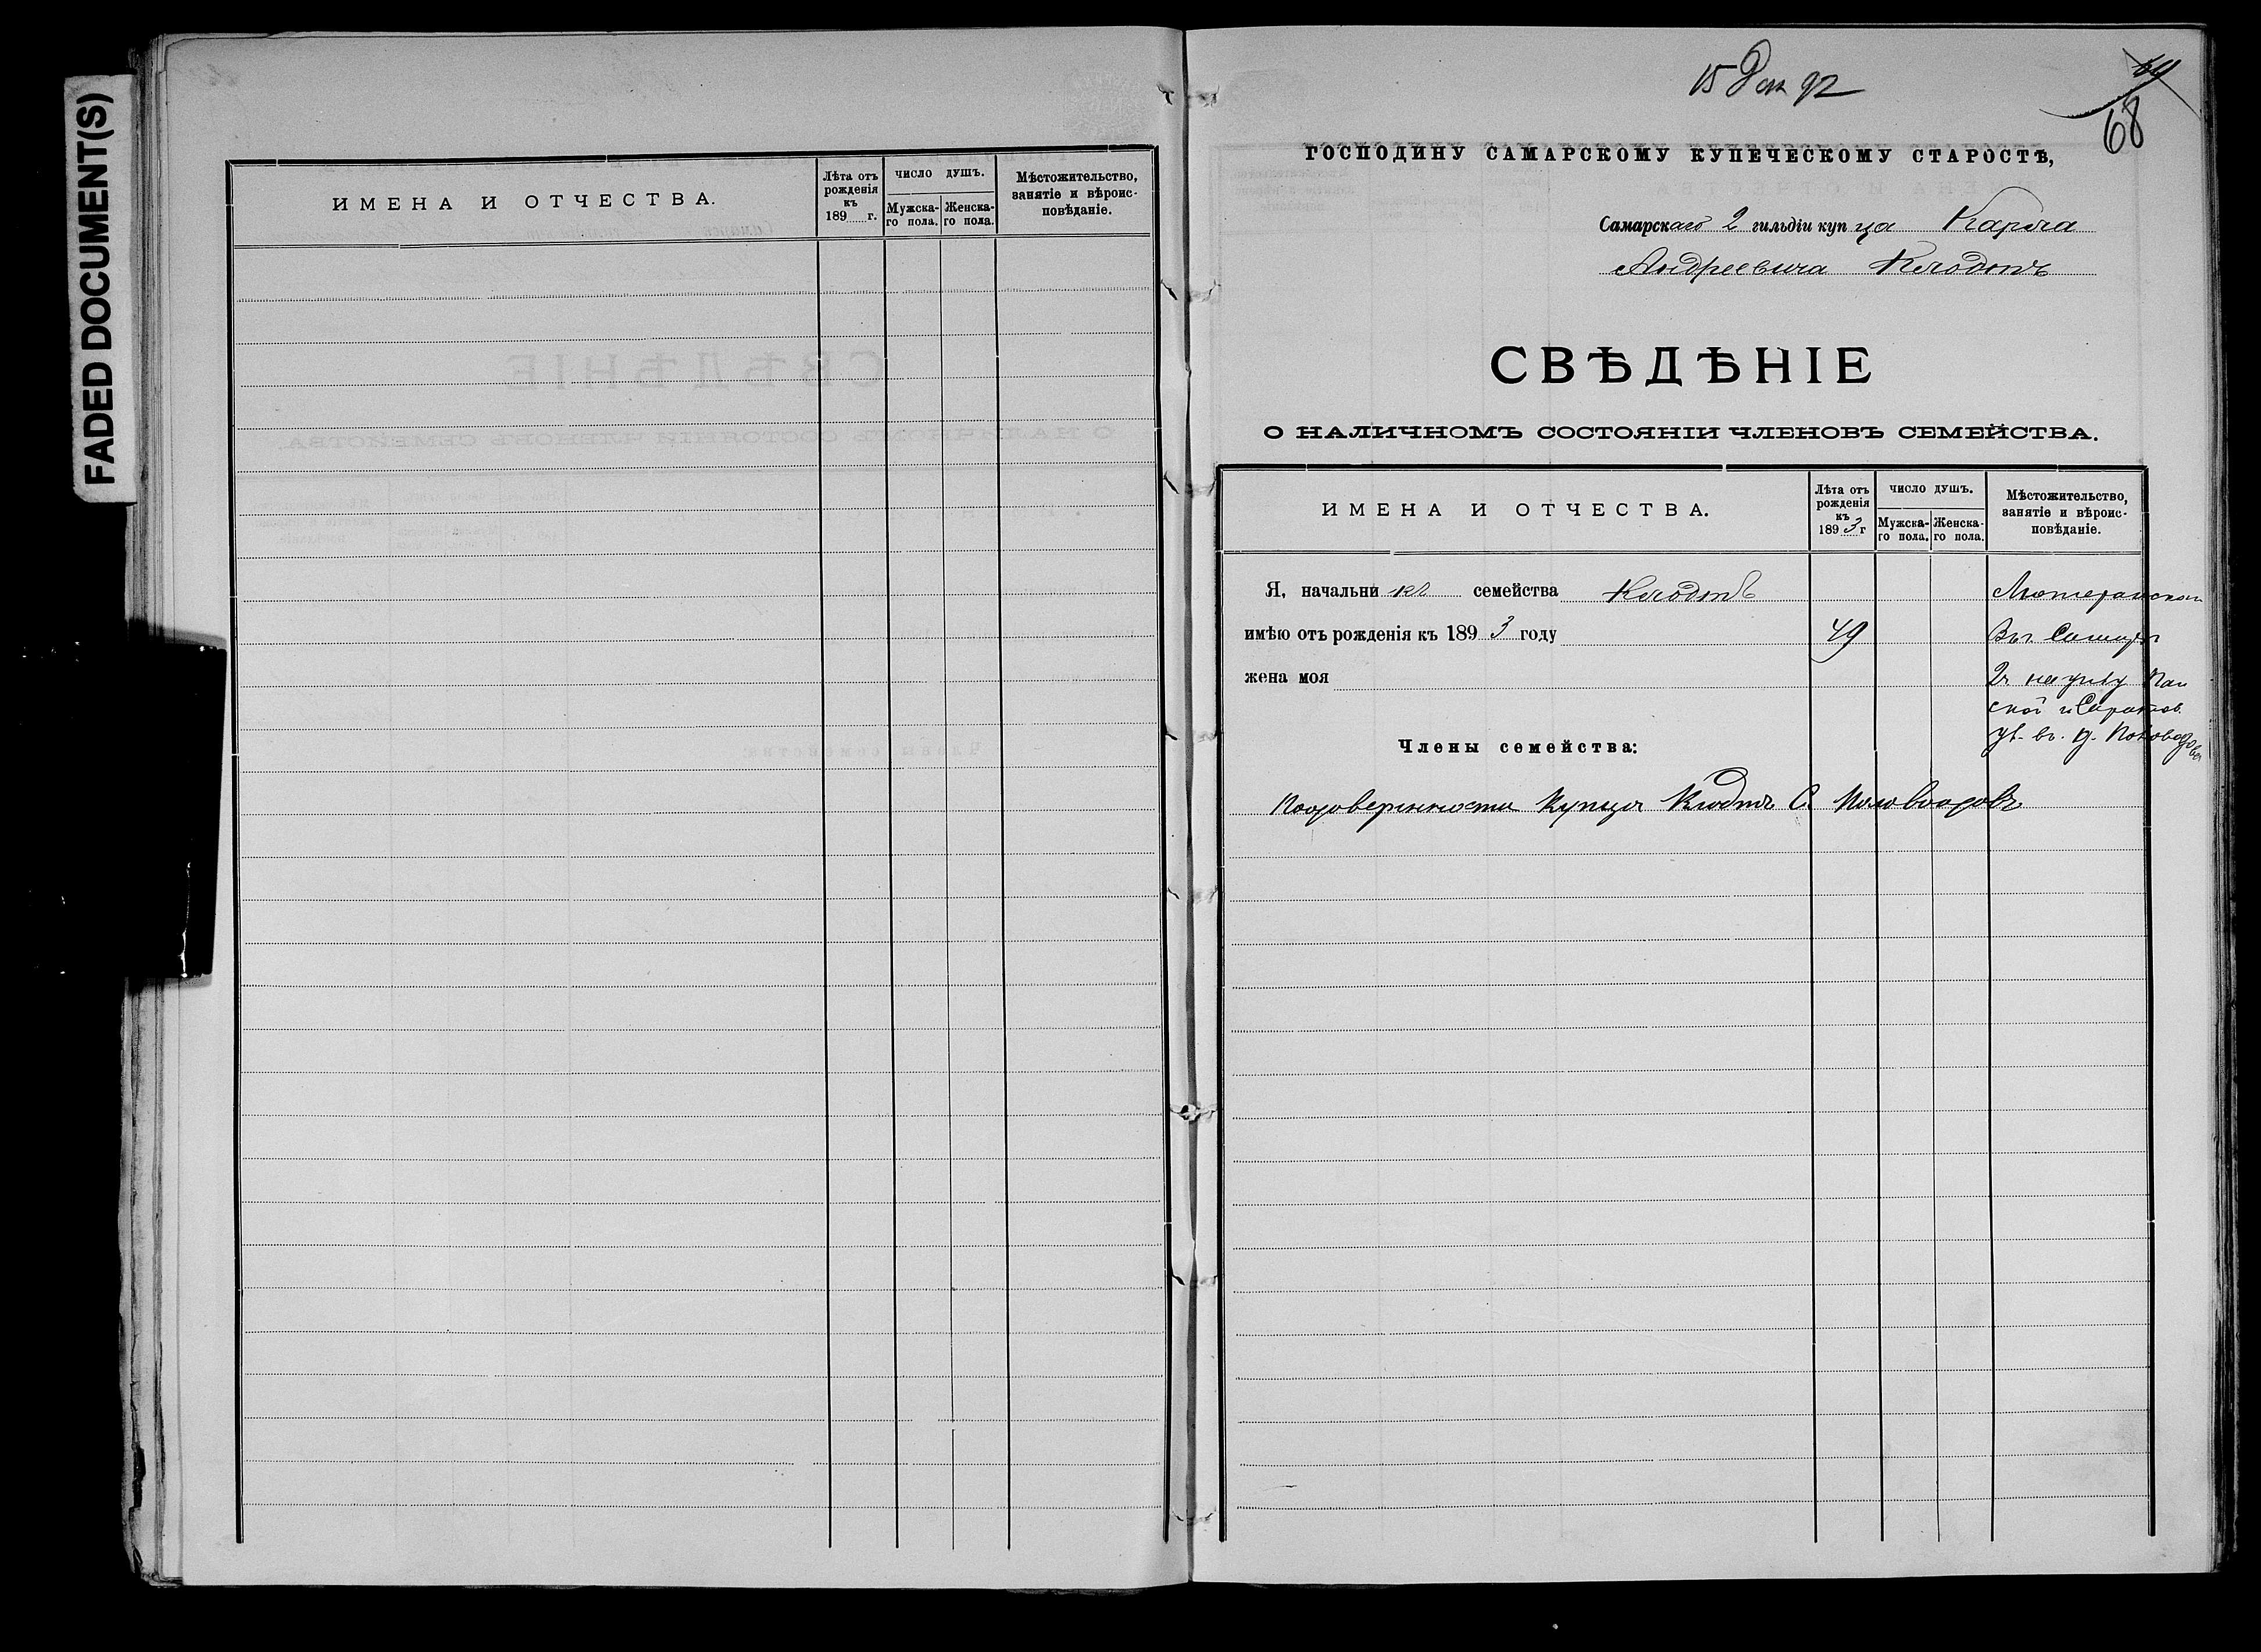 FADED DOCUMENT(S)
ИМЕНА И ОТЧЕСТВА.
Лѣта отъ рожденія къ 189 г.
ЧИСЛО ДУШЪ.
Мужска-го пола.
Женска-го пола.
Мѣстожительство, занятіе и вѣроис-повѣданіе.
15 Дек 92
68
ГОСПОДИНУ САМАРСКОМУ КУПЕЧЕСКОМУ СТАРОСТѢ,
Самарскаго 2 гильдіи купца Карла
Андреевича Клодтъ
СВѢДѢНІЕ
О НАЛИЧНОМЪ СОСТОЯНІИ ЧЛЕНОВЪ СЕМЕЙСТВА.
ИМЕНА И ОТЧЕСТВА.
Лѣта отъ рожденія къ 1893 г
ЧИСЛО ДУШЪ.
Мужска-го пола.
Женска-го пола.
Мѣстожительство, занятіе и вѣроис-повѣданіе.
Я, начальникъ семейства Клодтъ
имѣю отъ рожденія къ 1893 году 49
жена моя
Члены семейства:
Лютеранскаго
2ч на углу Пан
ской и Саратов.
ул. въ. д. Половодова
По доверенности Купца Клодтъ С. Половодовъ